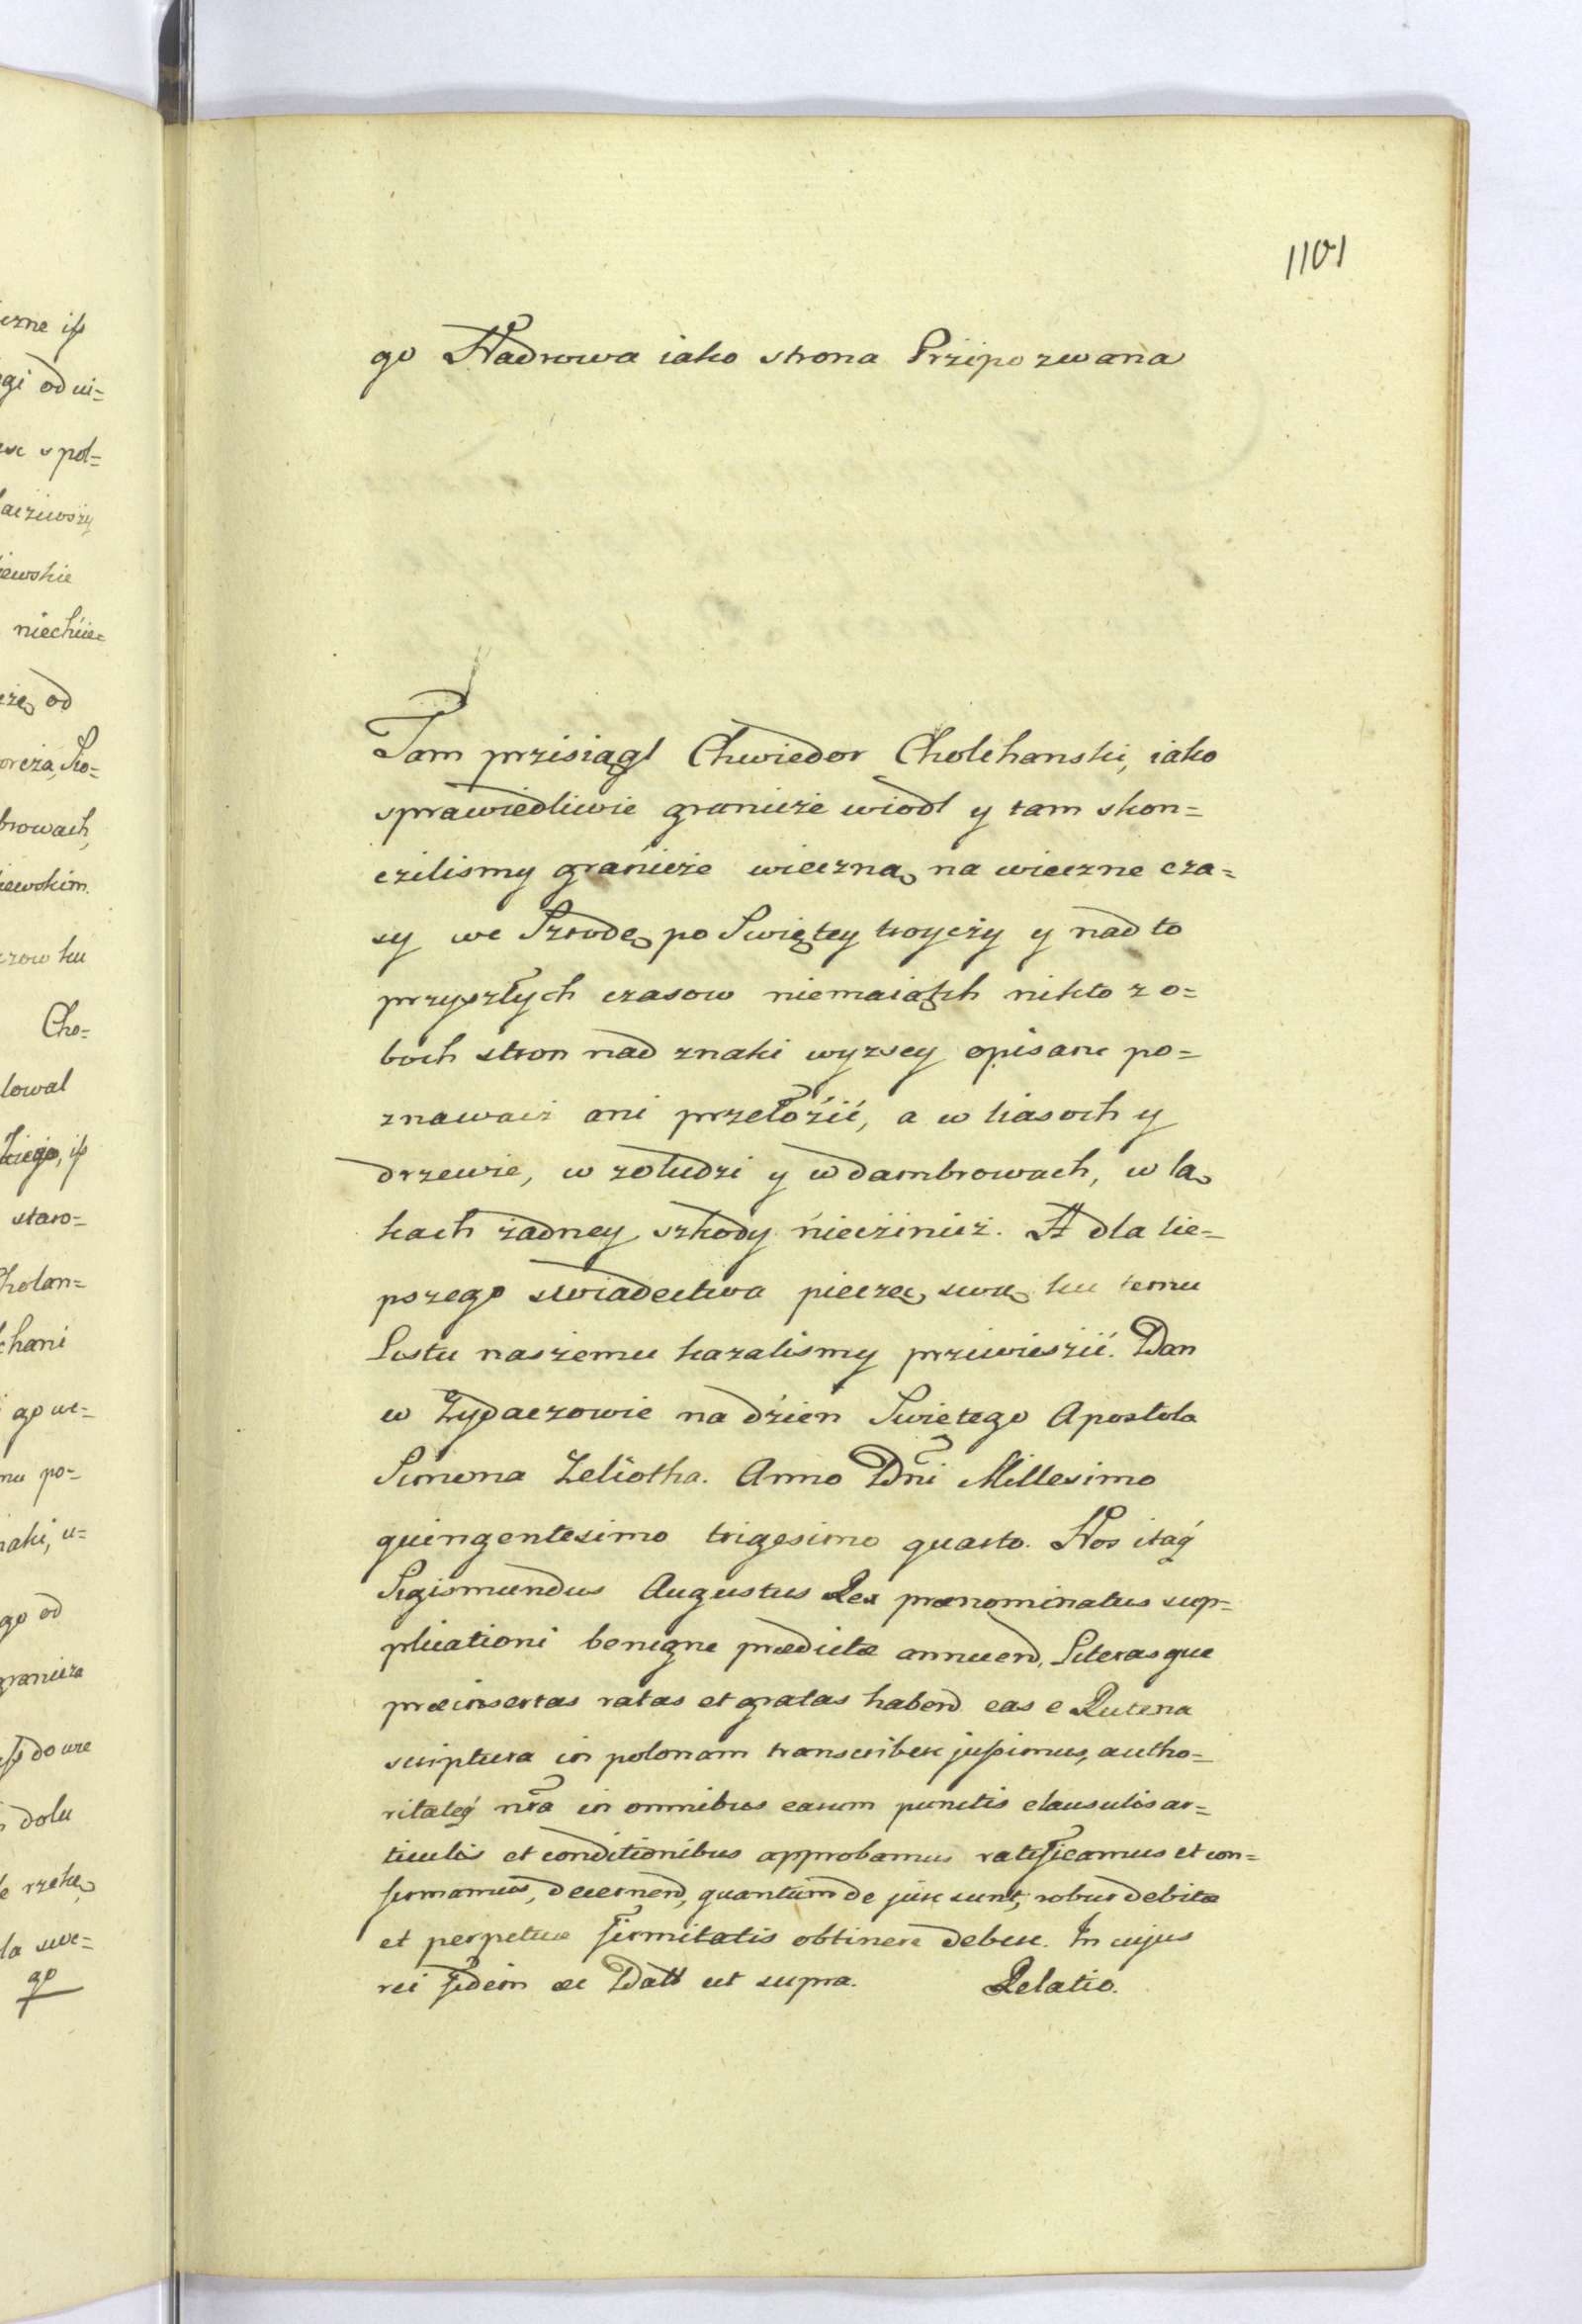 1101
go Nadrowa iako strona Przipozwana
Tam przisiągl Chwiedor Cholehanski, iako
sprawiedliwie granicże wiodl y tam skon=
czilismy granicże wieczną na wieczne cza=
sy we Szrodę po Swiętey troyczy y nad to
przyszłych czasow niemaiąch nikto z o=
boch stron nad znaki wyzsey opisane po=
znawacż ani przełożić, a w liasoch y
drzewie, w zołudzi y w dambrowach, w lą
kach żadney szkody niecżinicż. A dla lie=
pszego swiadectwa pieczęc swą ku temu
Listu naszemu kazalismy prziwieszić. Dan
w Żydaczowie na dzien Swiętego Apostola
Simona Zeliotha. Anno Dni Millesimo
quingentesimo trigesimo quarto. Nos itaq
Sigismundus Augustus Rex prænominatus sup=
plicationi benigne prædictæ annuend, Literasque
præinsertas ratas et gratas habend eas e Rutena
scriptura in polonam transcribere jussimus, autho=
ritateq nra in omnibus earum punctis clausulis ar=
ticulis et conditionibus approbamus ratificamus et con=
firmamus, decernend, quantum de jure sunt, robur debitæ
et perpetuæ firmitatis obtinere debere. In cujus
rei fidem &c Datt ut supra. Relatio.